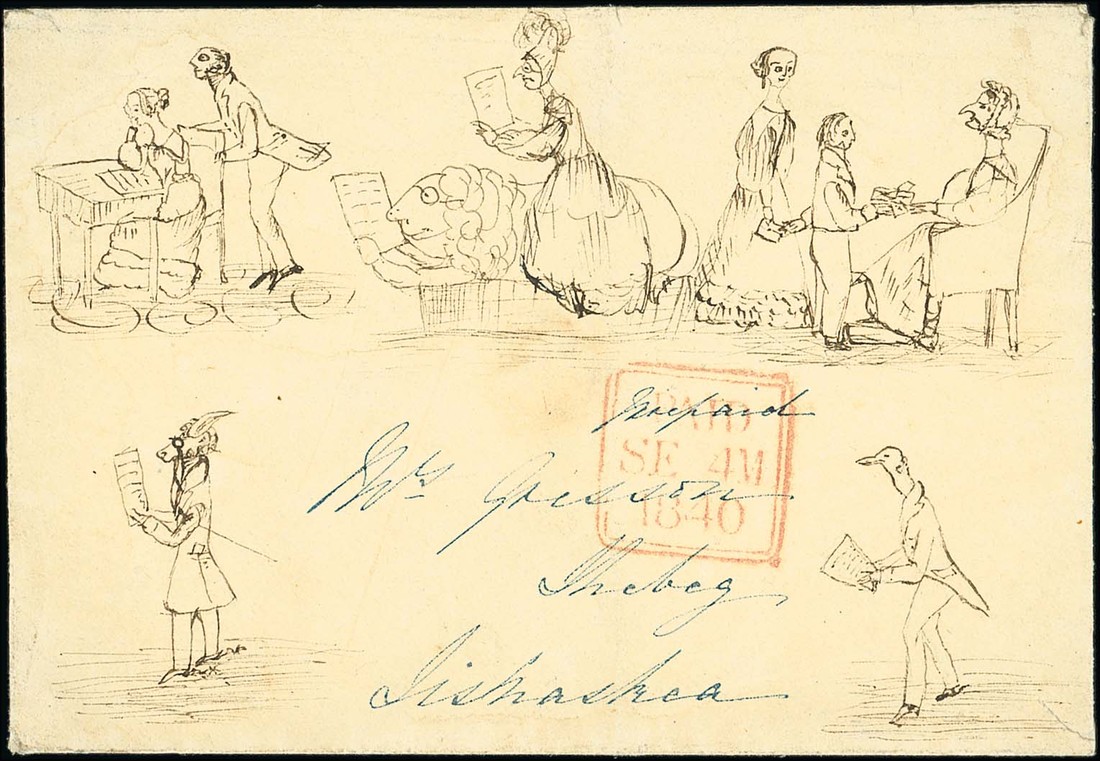 Prepaid
PAID
SE 4M
1840
Mrs Grisson
Thebeg
Lishaskea